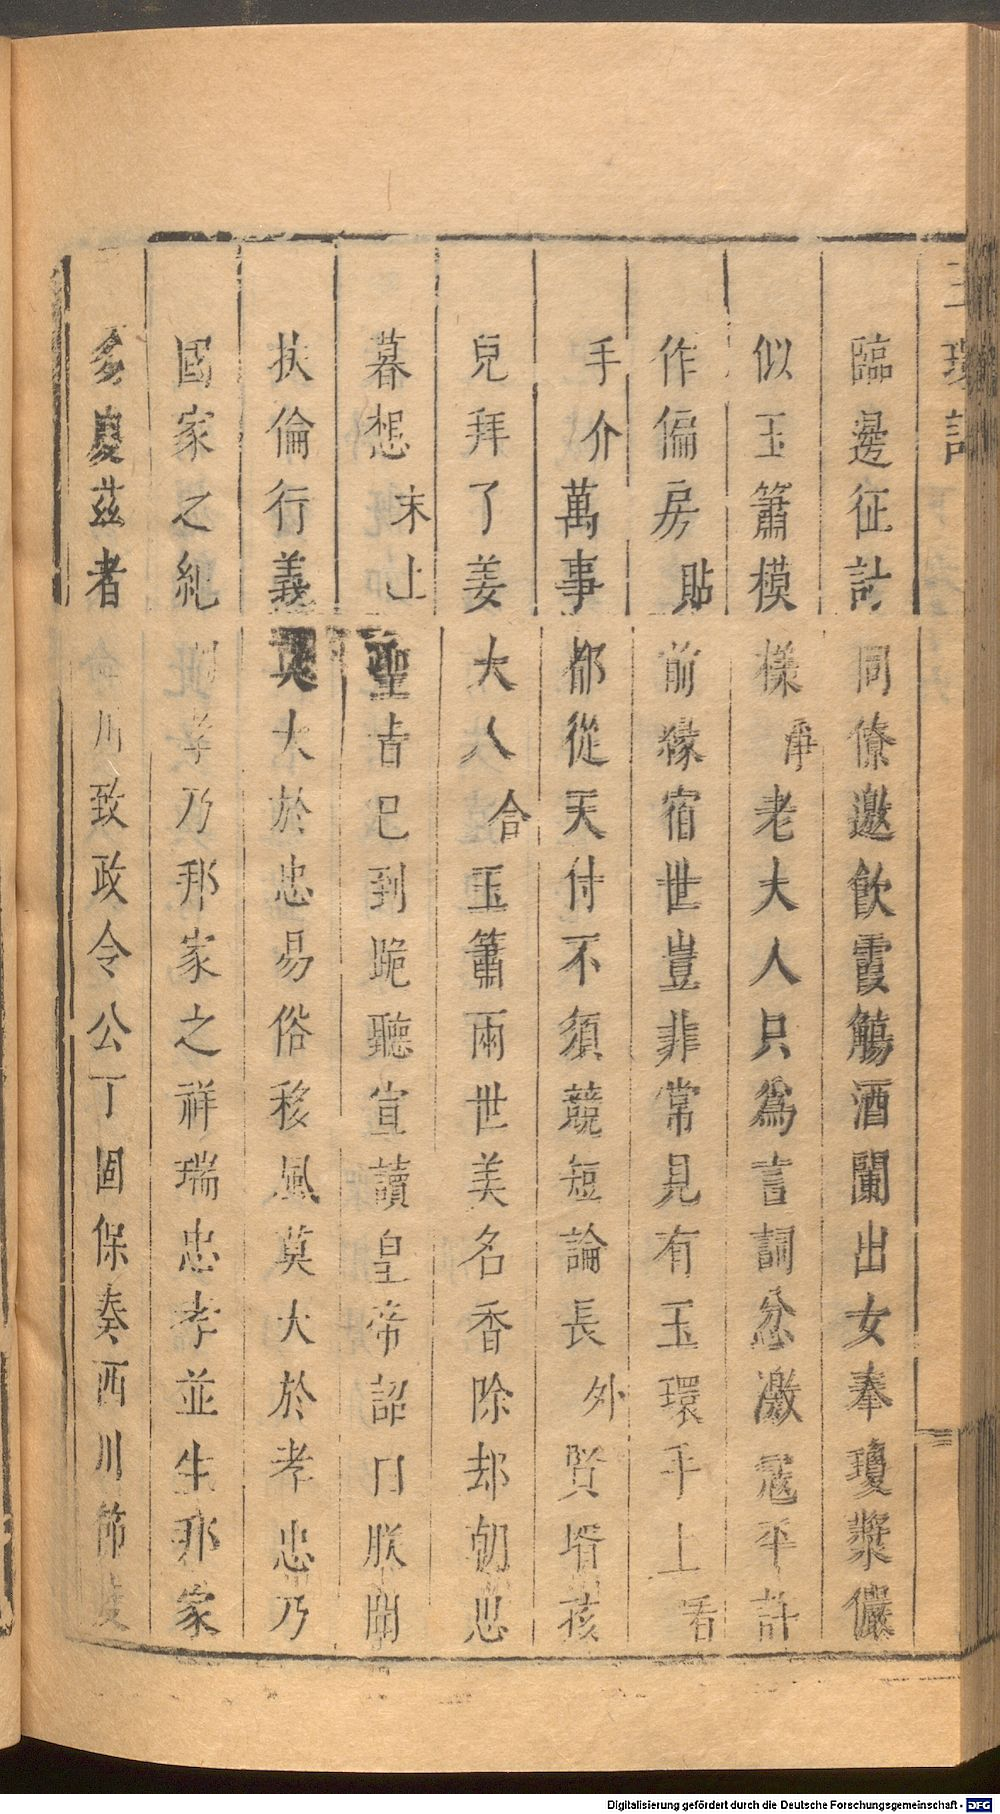 玉環記
臨邊征討同僚邀飲霞觴酒闌出女奉瓊漿儼
似玉簫模樣淨老大人只爲言詞忿激寇平討
作偏房貼前緣宿世豈非常見有玉環手上看
手介萬事都從天付不須競短論長外賢壻孩
兒拜了姜大人合玉簫兩世美名香除却朝思
暮想末上聖旨已到跪聽宣讀皇帝詔曰朕聞
扶倫行義莫大於忠易俗移風莫大於孝忠乃
國家之紀孝乃邦家之祥瑞忠孝並生邦家
多慶茲者川致政令公丁固保奏西川節度
Digitalisierung gefördert durch die Deutsche Forschungsgemeinschaft - DFG